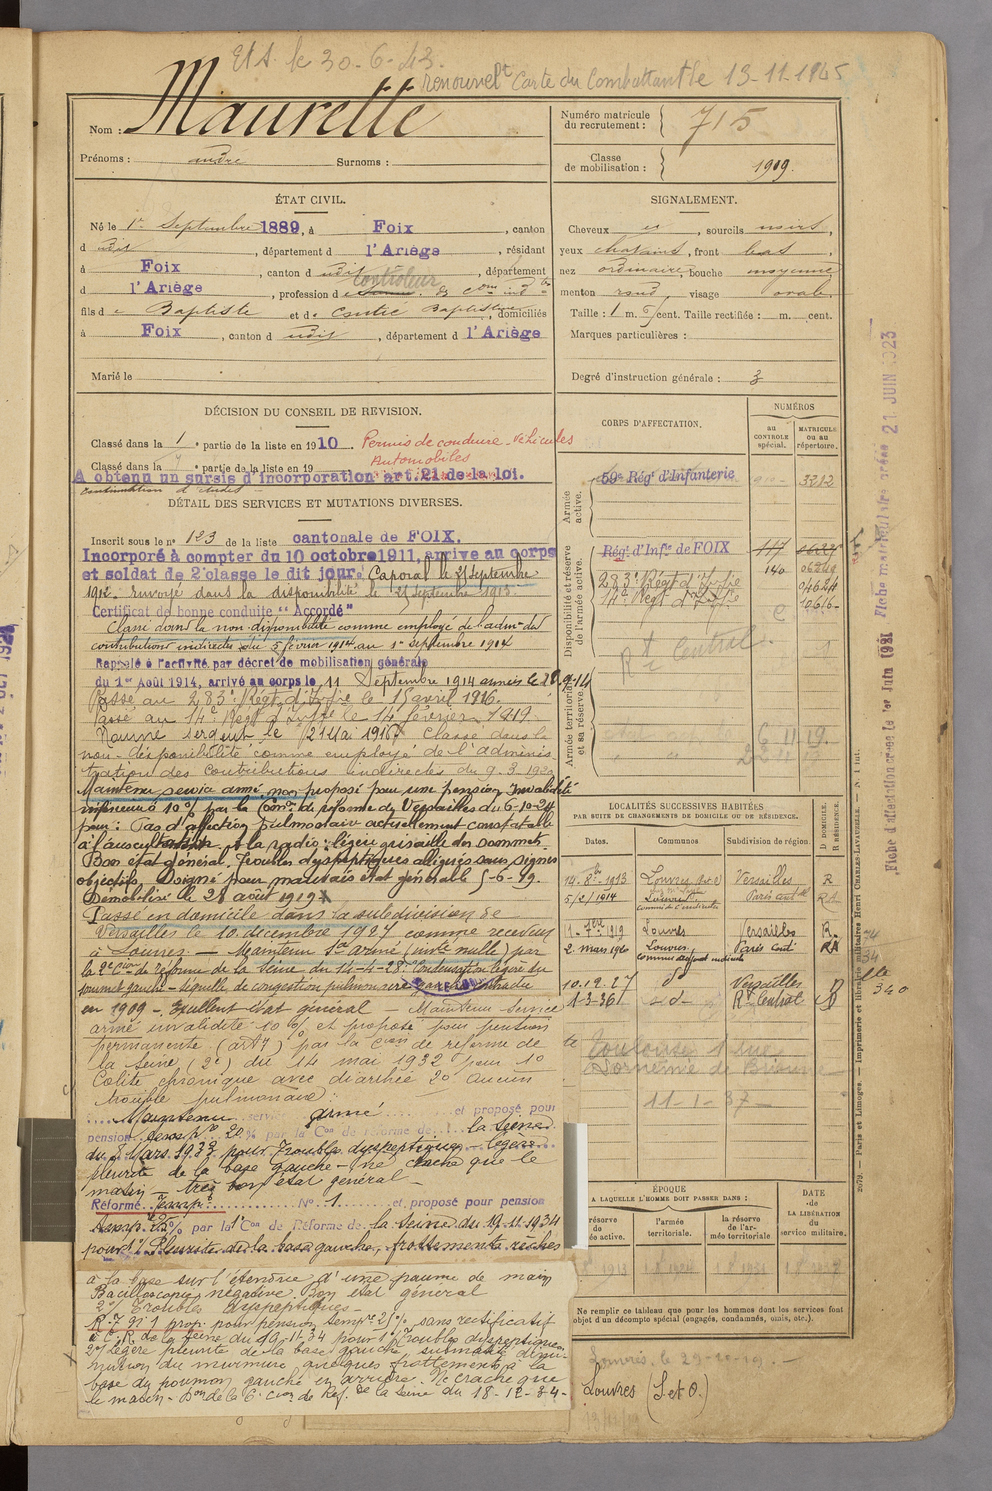 Ets. le 30-6-43.
renouvelt Carte du Combattant le 13-11-1945
Nom : Maurette
Prénoms : andré Surnoms :
Numéro matricule du recrutement : 715
Classe de mobilisation : 1909.
ÉTAT CIVIL.
Né le 1er Septembre 1889, à Foix, canton
d udit, département d l'Ariège, résidant
à Foix, canton d udit, département
contrôleur
d l'Ariège, profession d
fils de Baptiste et de Baptistine, domiciliés
à Foix, canton d udit, département d l'Ariège
Marié le
SIGNALEMENT.
Cheveux et, sourcils noirs,
yeux chatains, front bas,
nez ordinaire, bouche moyenne,
menton rond, visage ovale.
Taille : 1 m. cent. Taille rectifiée : m. cent.
Marques particulières :
Degré d'instruction générale : 3
DÉCISION DU CONSEIL DE REVISION.
Classé dans la 1e partie de la liste en 1910 Permis de conduire Véhicules
Automobiles
Classé dans la e partie de la liste en 19
A obtenu un sursis d'incorporation art. 21 de la loi.
continuation d'études
DÉTAIL DES SERVICES ET MUTATIONS DIVERSES.
Inscrit sous le n° 123 de la liste cantonale de FOIX.
Incorporé à compter du 10 octobre 1911, arrive au corps
et soldat de 2e classe le dit jour. Caporal le 21 Septembre
1912. Envoyé dans la disponibilité le 25 Septembre 1913.
Certificat de bonne conduite "Accordé"
Classé dans la non-disponibilité comme employé de l'admon des
contributions indirectes du 5 février 1914 au 1er septembre 1914
Rappelé à l'activité par décret de mobilisation générale
du 1er Août 1914, arrivé au corps le 11 Septembre 1914
Passé au 283e Régt d'Infie le 15 avril 1916.
Passé au 14e Régt d'Infie le 14 février 1919.
Nommé sergent le 21 Mai 1916. Classé dans la
non-disponibilité comme employé de l'adminis
tration des Contributions indirectes du 9.3.1920
Maintenu service armé, non proposé pour une pension Invalidité
inférieure à 10% par la Comon de réforme de Versailles du 6-10-24
pour : Pas d'affection pulmonaire actuellement constatable
à l'auscultation. A la radio : légère grisaille des sommets.
Bon état général. Troubles dyspeptiques allégués sans signes
objectifs. Soigné pour mauvais état général 5-6-19.
Démobilisé le 28 août 1919
Passé en domicile dans la subdivision de
Versailles le 10 décembre 1927 comme receveur
à Louvres. — Maintenu Sce armé (invté nulle) par
la 2e Cion de réforme de la Seine du 14-4-28. Condensation légère du
sommet gauche — séquelle de congestion pulmonaire
en 1909 — Excellent état général — Maintenu service
armé invalidité 10% et proposé pour pension
permanente (art 7) par la Cion de réforme de
la Seine (2e) du 14 mai 1932 pour 1°
Colite chronique avec diarrhée 2° aucun
trouble pulmonaire :
Maintenu service armé et proposé pour
pension temp. re 20% par la Con de réforme de la Seine
du 8 Mars 1933 pour Troubles dyspeptiques — légère
pleurite de la base gauche — ne crache que le
matin — très bon état général —
Réformé Temp. N° 1 et proposé pour pension
temp. re 25% par la 1e Con de Réforme de la Seine du 19.11.1934
pour 1°/ Pleurite de la base gauche, frottements rêches
à la base sur l'étendue d'une paume de main
Bacilloscopie négative. Bon état général
2°/ Troubles dyspeptiques —
R.T. n° 1 prop. pour pension temp. re 25% sans rectificatif
à C.R. de la Seine du 19-11-34 pour 1° Troubles dyspeptiques
2°/ légère pleurite de la base gauche submatité dimi-
nution du murmure quelques frottements à la
base du poumon gauche en arrière. Ne crache que
le matin — Don de la 6e Cion de Réf. de la Seine du 18-12-34-
CORPS D'AFFECTATION.
NUMÉROS
au CONTROLE spécial.
MATRICULE ou au répertoire.
Armée active.
59e Régt d'Infanterie 3212
Disponibilité et réserve de l'armée active.
Régt d'Infie de FOIX 117
283e Régt d'Infie 140
14e Régt d'Infie
Rt Central
Armée territoriale et sa réserve.
6.11.19.
LOCALITÉS SUCCESSIVES HABITÉES
PAR SUITE DE CHANGEMENTS DE DOMICILE OU DE RÉSIDENCE.
Dates. Communes Subdivision de région. D DOMICILE. R RÉSIDENCE.
14-8bre 1913 Louvres Versailles R
5/2/1914 Louvres Paris
1-7bre 1919 Louvres Versailles R.
2 mars 1920 Louvres Paris RA
10.12.27 do Versailles
1-3-36 -d- Rt Central D
Toulouse
11-1-37
ÉPOQUE
A LAQUELLE L'HOMME DOIT PASSER DANS :
DATE de LA LIBÉRATION du service militaire.
l'armée territoriale.
la réserve de l'armée territoriale
Ne remplir ce tableau que pour les hommes dont les services font
objet d'un décompte spécial (engagés, condamnés, omis, etc.).
Louvres, le 29-10-19. —
Louvres (S. et O.)
Fiche d'affectation créée le 1er Juin 1921
Fiche matriculaire créée 21 JUIN 1923
2079. — Paris et Limoges. — Imprimerie et librairie militaires Henri CHARLES-LAVAUZELLE.